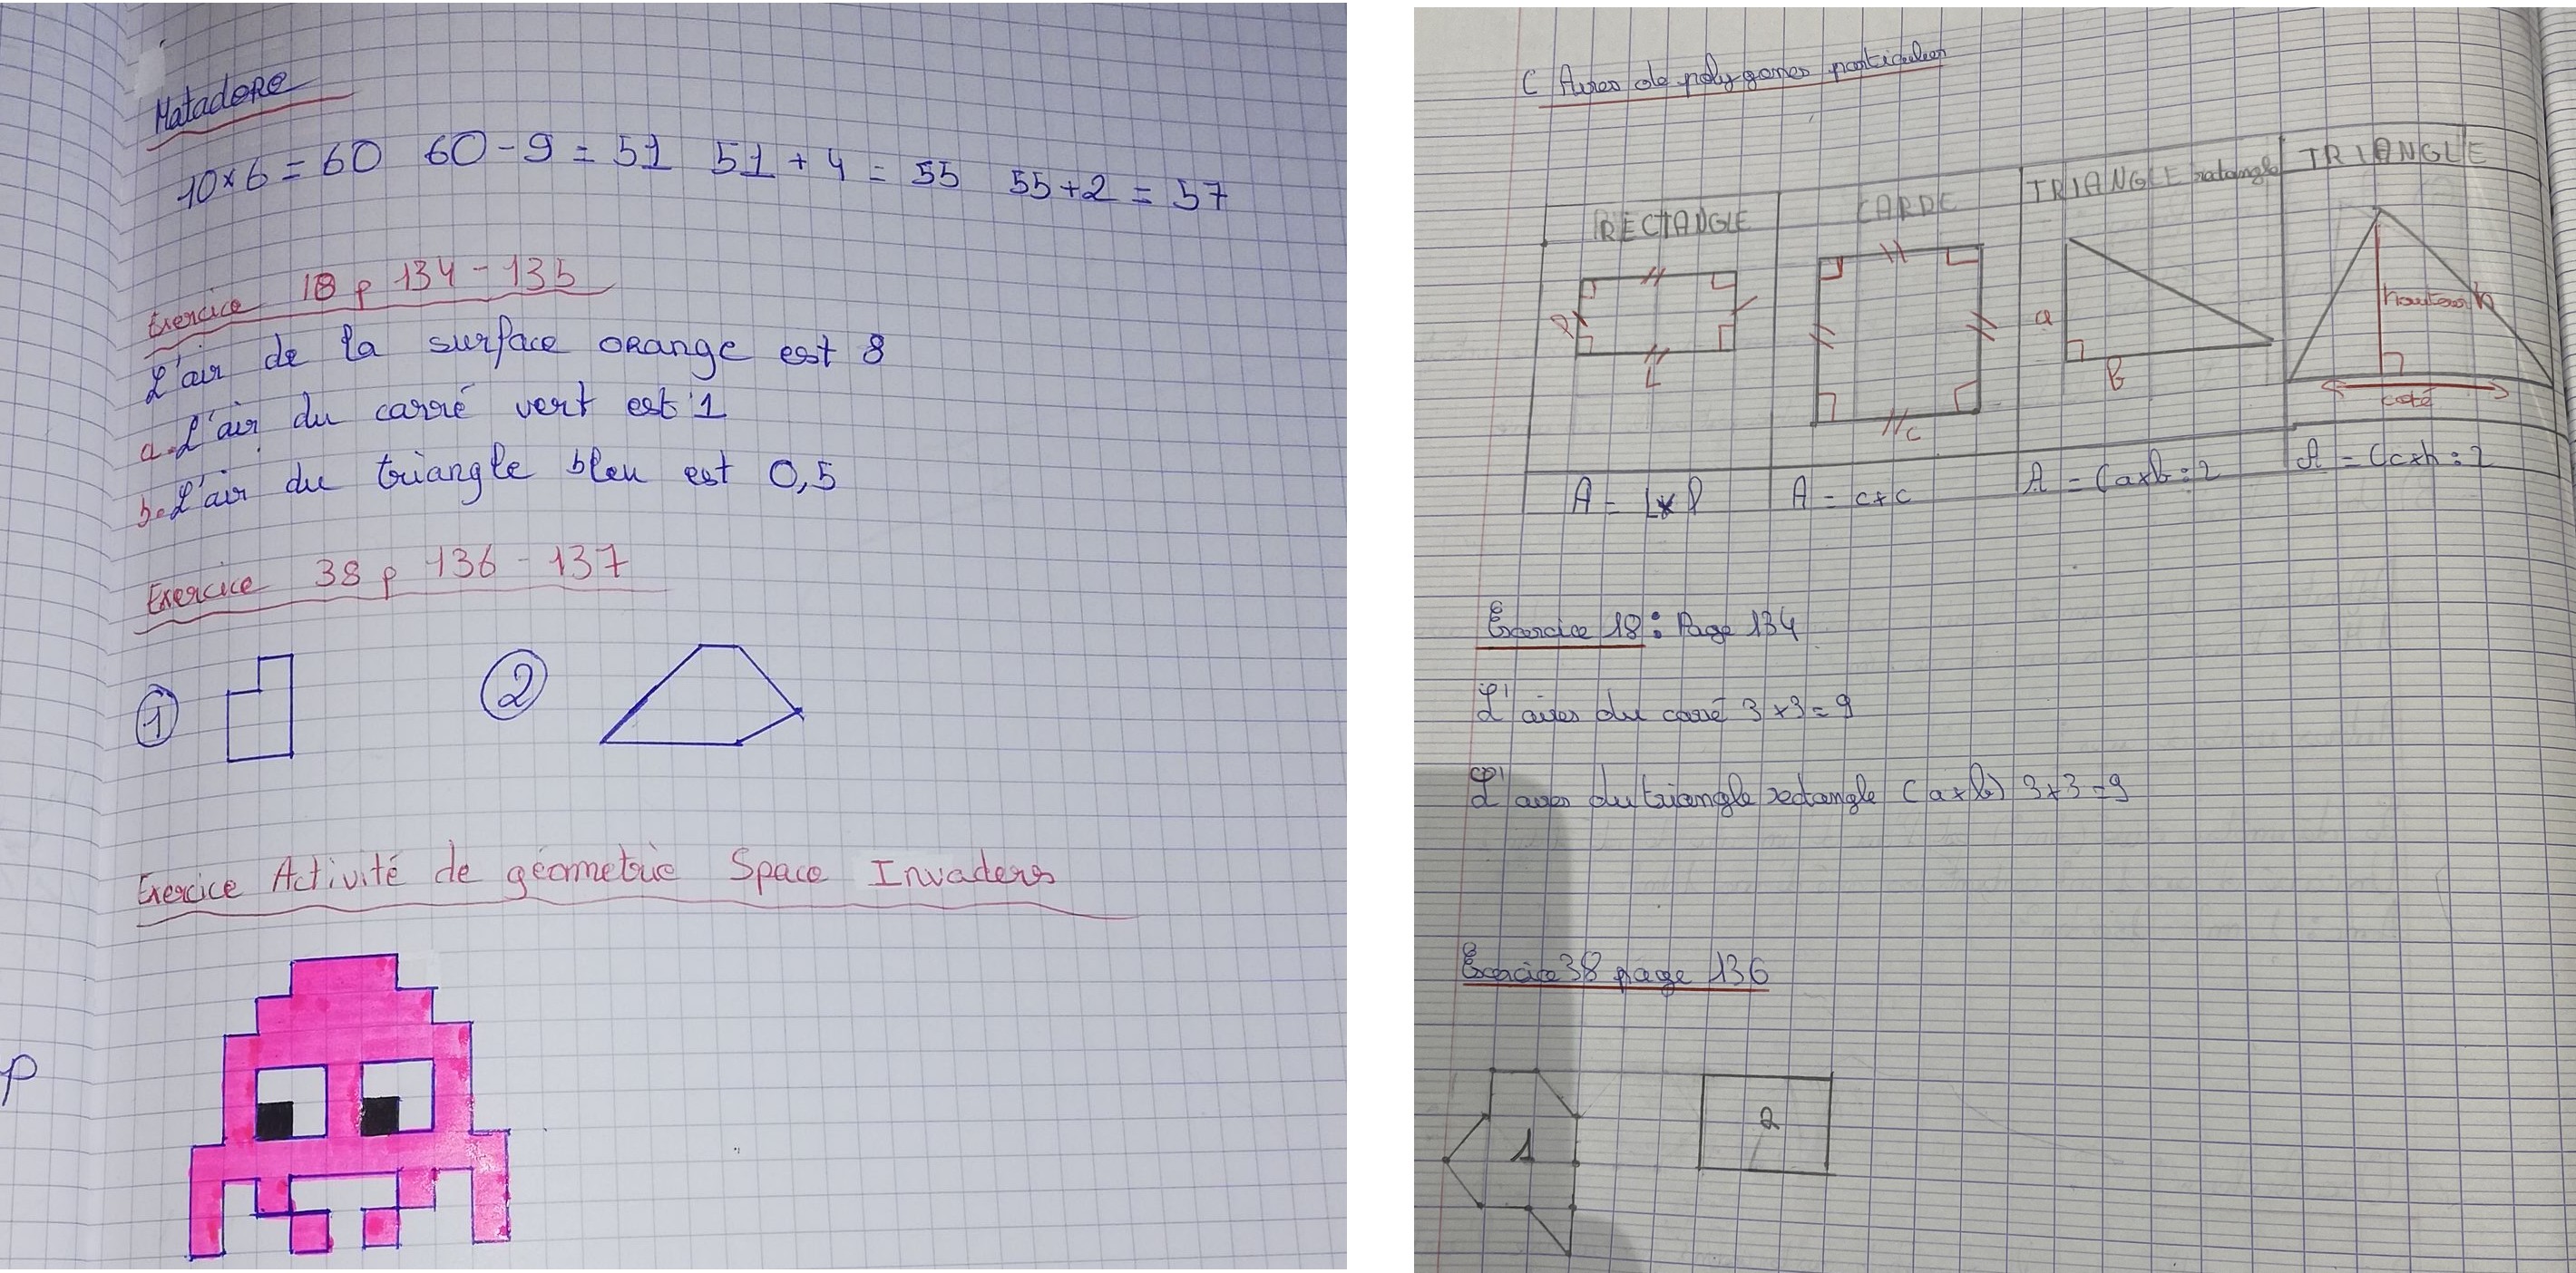 MatadoRe
10×6 = 60 60 - 9 = 51 51 + 4 = 55 55+2 = 57
Exercice 18 p 134 - 135
L'air de la surface orange est 8
a. L'air du carré vert est 1
b. L'air du triangle bleu est 0,5
Exercice 38 p 136 - 137
1 2
Exercice Activité de géometrie Space Invaders
p
C Aires de polygones particuliers
RECTANGLE CARDE TRIANGLE ratangle TRIANGLE
l L
c
a B
hauteur h
coté
A = L×l A = c×c A = (a×b : 2 A = (c×h : 2
Exercice 18 : Page 134
L'aires du carré 3×3 = 9
L'aires du triangle rectangle (a×b) 3×3 = 9
Exercice 38 page 136
1 2